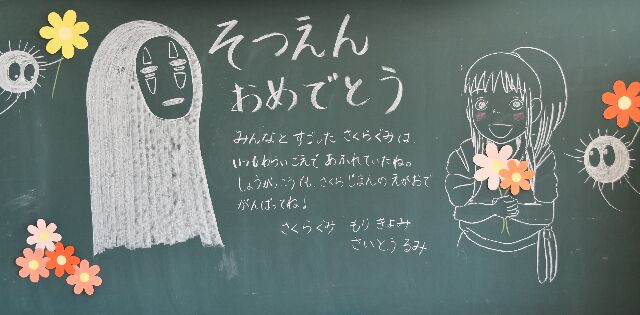 そつえん
おめでとう
みんなとすごした さくらぐみは、
いつもわらいごえで あふれていたね。
しょうがっこうでも、さくらじまんのえがおで
がんばってね！
さくらぐみ もり きよみ
さいとう るみ